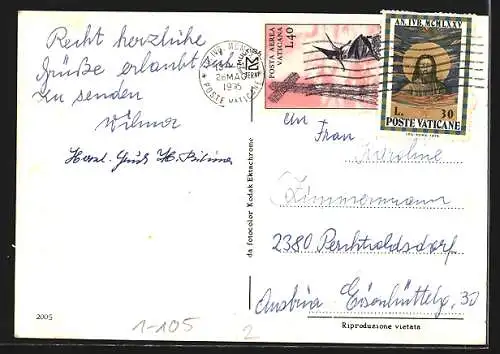 Recht herzliche
Grüße erlaubt sich
zu senden
Wilma
Herzl.
2005
da fotocolor Kodak Ektachrome
POSTA AEREA
VATICANA
L.40
POSTE VATICANE
AN. IVB. MCMLXXV
L. 30
POSTE VATICANE
An Frau
Karoline
Zimmermann
2380 Perchtoldsdorf
Austria Eisenhüttelg. 30
Riproduzione vietata
1-105
2